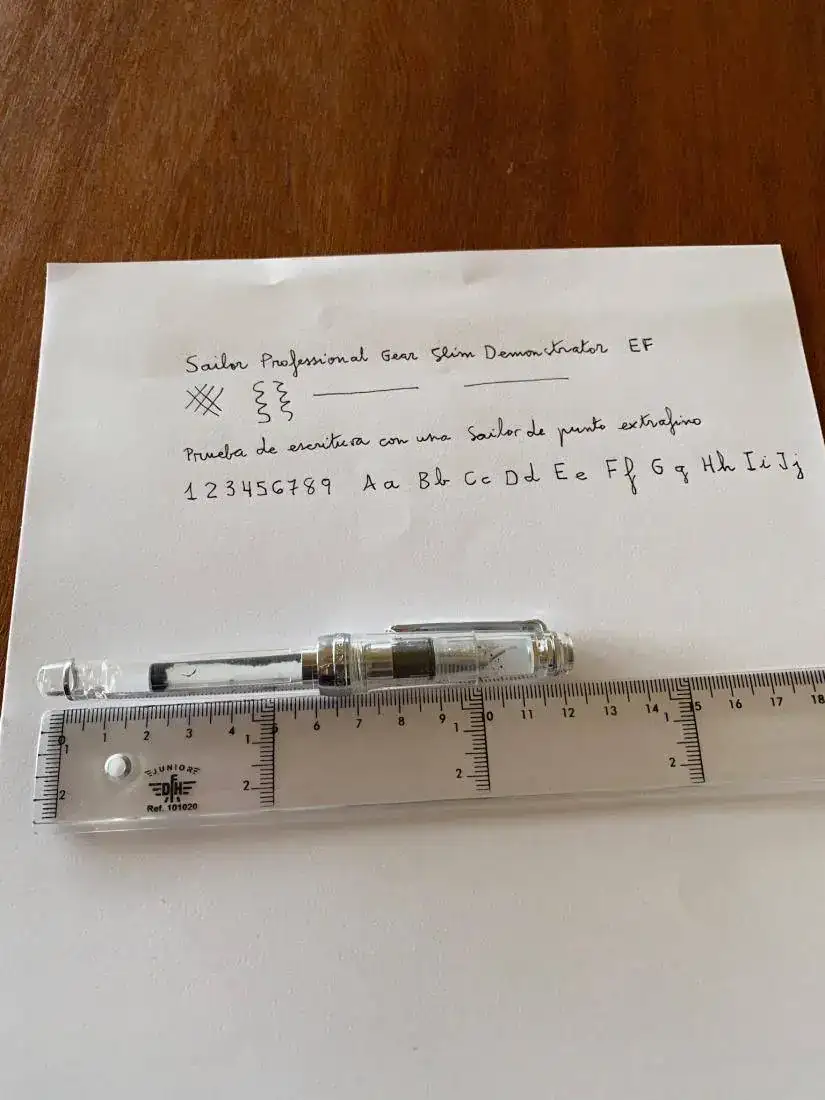 Sailor Professional Gear Slim Demonstrator EF
Prueba de escritura con una Sailor de punto extrafino
1 2 3 4 5 6 7 8 9 A a B b C c D d E e F f G g H h I i J j
0 1 2 3 4 5 6 7 8 9 10 11 12 13 14 15 16 17 18
1 1 1 1
2 2 2 2
JUNIOR
DFH
Ref. 101020